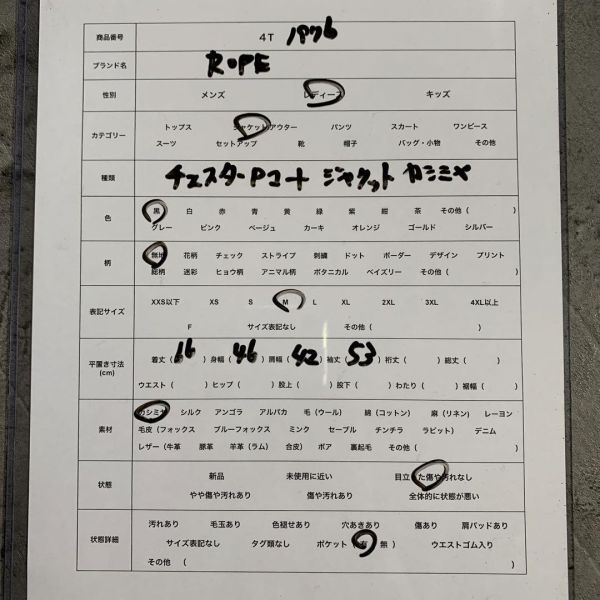 商品番号 4T 1876
ブランド名 ROPE
性別 メンズ レディース キッズ
カテゴリー トップス ジャケット/アウター パンツ スカート ワンピース
スーツ セットアップ 靴 帽子 バッグ・小物 その他
種類 チェスターPコート ジャケット カシミヤ
色 黒 白 赤 青 黄 緑 紫 紺 茶 その他( )
グレー ピンク ベージュ カーキ オレンジ ゴールド シルバー
柄 無地 花柄 チェック ストライプ 刺繍 ドット ボーダー デザイン プリント
総柄 迷彩 ヒョウ柄 アニマル柄 ボタニカル ペイズリー その他( )
表記サイズ XXS以下 XS S M L XL 2XL 3XL 4XL以上
F サイズ表記なし その他( )
平置き寸法 (cm) 着丈( ) 身幅(46) 肩幅(42) 袖丈(53) 裄丈( ) 総丈( )
ウエスト( ) ヒップ( ) 股上( ) 股下( ) わたり( ) 裾幅( )
素材 カシミヤ シルク アンゴラ アルパカ 毛(ウール) 綿(コットン) 麻(リネン) レーヨン
毛皮(フォックス ブルーフォックス ミンク セーブル チンチラ ラビット) デニム
レザー(牛革 豚革 羊革(ラム) 合皮) ボア 裏起毛 その他( )
状態 新品 未使用に近い 目立った傷や汚れなし
やや傷や汚れあり 傷や汚れあり 全体的に状態が悪い
状態詳細 汚れあり 毛玉あり 色褪せあり 穴あきあり 傷あり 肩パッドあり
サイズ表記なし タグ類なし ポケット(有 無) ウエストゴム入り
その他( )